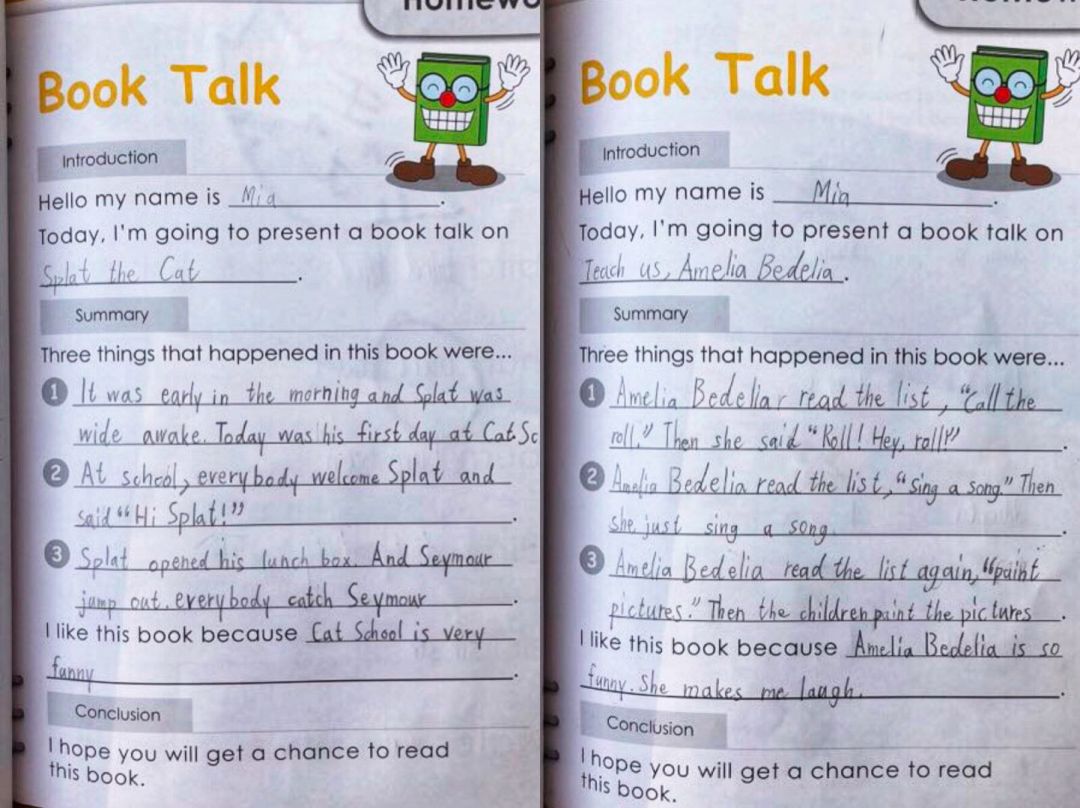 Homewo
Book Talk
Introduction
Hello my name is Mia.
Today, I'm going to present a book talk on
Splat the Cat.
Summary
Three things that happened in this book were...
1 It was early in the morning and Splat was
wide awake. Today was his first day at Cat Sc
2 At school, everybody welcome Splat and
said "Hi Splat!".
3 Splat opened his lunch box. And Seymour
jump out. everybody catch Seymour.
I like this book because Cat School is very
funny.
Conclusion
I hope you will get a chance to read
this book.
Book Talk
Introduction
Hello my name is Mia.
Today, I'm going to present a book talk on
Teach us, Amelia Bedelia.
Summary
Three things that happened in this book were...
1 Amelia Bedeliar read the list, "Call the
roll." Then she said "Roll! Hey, roll!".
2 Amelia Bedelia read the list, "sing a song." Then
she just sing a song.
3 Amelia Bedelia read the list again, "paint
pictures." Then the children paint the pictures.
I like this book because Amelia Bedelia is so
funny. She makes me laugh.
Conclusion
I hope you will get a chance to read
this book.